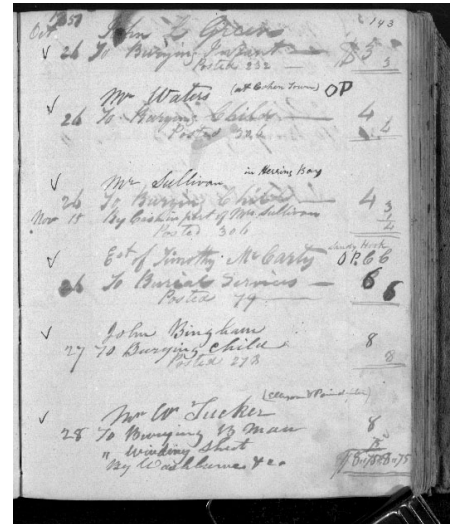 1857 193
Oct. John Green
√ 26 To Burying Infant — $5 3
Posted 232 —
√ Mr Waters (at Cohen Town) OP
26 To Burying Child — 4
Posted 326 4
√ Mr Sullivan in Herring Bay
26 To Burying Child — 4 3
Nov 15 By Cash in part of Mr Sullivan 1
Posted 306 4
√ Est of Timothy McCarty Sandy Hook OP. 66
26 To Burial Services — 6
Posted 79 — 6
√ John Bingham
27 To Burying Child 8
Posted 273 8
√ Mr Wm Tucker
28 To Burying B Man 8
" Winding Sheet 75
By Washburne & co 8.75 8.75